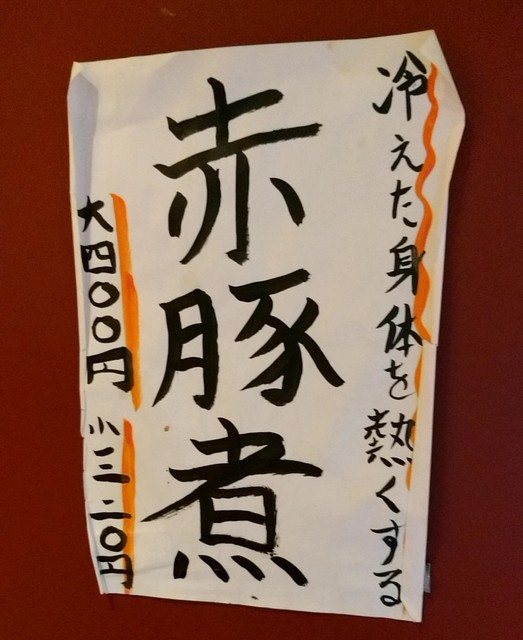 冷えた身体を熱くする
赤豚煮
大四〇〇円 小三二〇円